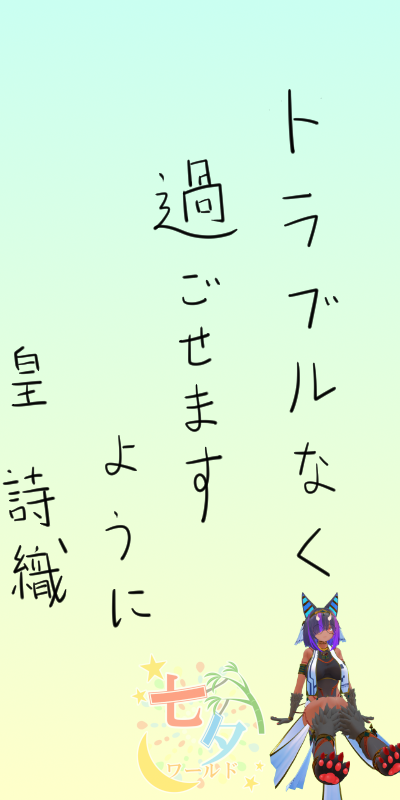 トラブルなく
過ごせます
ように
皇 詩織
七夕
ワールド